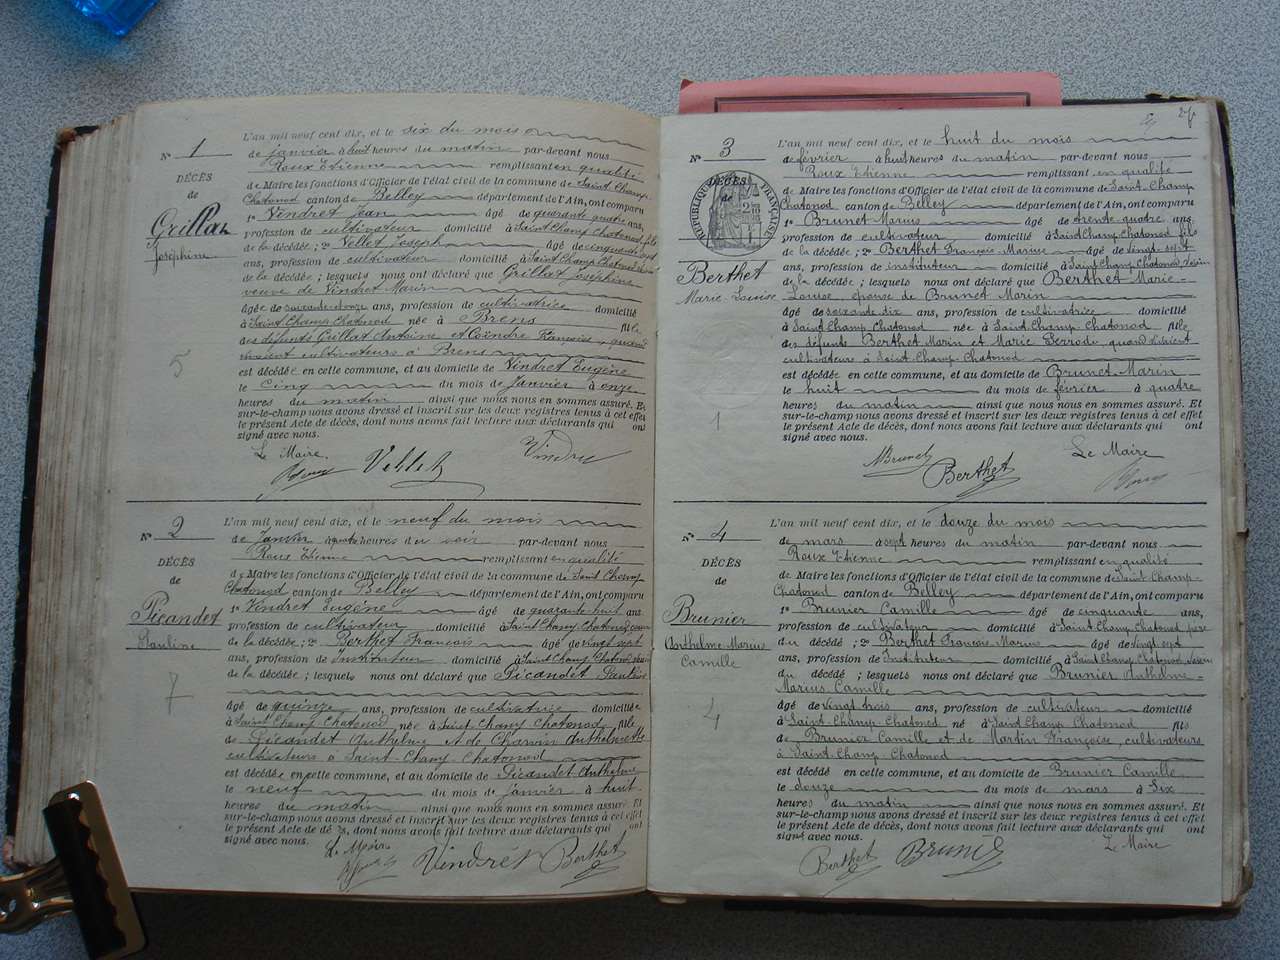 N° 1
DÉCÈS
de
Grillat
Joséphine
5
L'an mil neuf cent dix, et le six du mois
de janvier à huit heures du matin par-devant nous
Roux Etienne remplissant en qualité
de Maire les fonctions d'Officier de l'état civil de la commune de Saint Champ
Chatonod canton de Belley département de l'Ain, ont comparu
1° Vindret Jean âgé de quarante quatre ans,
profession de cultivateur domicilié à Saint Champ Chatonod, fils
de la décédée ; 2° Vellet Joseph âgé de cinquante sept
ans, profession de cultivateur domicilié à Saint Champ Chatonod
de la décédée ; lesquels nous ont déclaré que Grillat Joséphine
veuve de Vindret Marin
âgée de soixante-douze ans, profession de cultivatrice domicilié
à Saint Champ Chatonod née à Brens fille
des défunts Grillat Antoine et Françoise, quand
vivaient cultivateurs à Brens
est décédée en cette commune, et au domicile de Vindret Eugène
le Cinq du mois de Janvier à onze
heures du matin ainsi que nous nous en sommes assuré. Et
sur-le-champ nous avons dressé et inscrit sur les deux registres tenus à cet effet
le présent Acte de décès, dont nous avons fait lecture aux déclarants qui ont
signé avec nous.
Le Maire.
Vellet Vindret
N° 2
DÉCÈS
de
Picandet
Pauline
7
L'an mil neuf cent dix, et le neuf du mois
de Janvier à quatre heures du soir par-devant nous
Roux Etienne remplissant en qualité
de Maire les fonctions d'Officier de l'état civil de la commune de Saint Champ
Chatonod canton de Belley département de l'Ain, ont comparu
1° Vindret Eugène âgé de quarante huit ans
profession de cultivateur domicilié à Saint Champ Chatonod
de la décédée ; 2° Berthet François âgé de vingt sept
ans, profession de Instituteur domicilié à Saint Champ Chatonod voisin
de la décédée ; lesquels nous ont déclaré que Picandet Pauline
âgé de quinze ans, profession de cultivatrice domiciliée
à Saint Champ Chatonod née à Saint Champ Chatonod fille
de Picandet Anthelme et de Charvin Anthelmette
cultivateurs à Saint-Champ-Chatonod
est décédée en cette commune, et au domicile de Picandet Anthelme
le neuf du mois de janvier à huit
heures du matin ainsi que nous nous en sommes assuré. Et
sur-le-champ nous avons dressé et inscrit sur les deux registres tenus à cet effet
le présent Acte de décès, dont nous avons fait lecture aux déclarants qui ont
signé avec nous.
Le Maire
Vindret Berthet
N° 3
DÉCÈS
de
RÉPUBLIQUE FRANÇAISE
Berthet
Marie-Louise
1
L'an mil neuf cent dix, et le huit du mois
de février à huit heures du matin par-devant nous
Roux Etienne remplissant en qualité
de Maire les fonctions d'Officier de l'état civil de la commune de Saint Champ
Chatonod canton de Belley département de l'Ain, ont comparu
1° Brunet Marius âgé de trente quatre ans,
profession de cultivateur domicilié à Saint Champ Chatonod fils
de la décédée ; 2° Berthet François Marius âgé de vingt sept
ans, profession de instituteur domicilié à Saint Champ Chatonod, voisin
de la décédée ; lesquels nous ont déclaré que Berthet Marie-
Louise, épouse de Brunet Marin
âgé de soixante dix ans, profession de cultivatrice domicilié
à Saint Champ Chatonod née à Saint Champ Chatonod fille
des défunts Berthet Marin et Marie Serrode, quand vivaient
cultivateurs à Saint-Champ Chatonod
est décédée en cette commune, et au domicile de Brunet Marin
le huit du mois de février à quatre
heures du matin ainsi que nous nous en sommes assuré. Et
sur-le-champ nous avons dressé et inscrit sur les deux registres tenus à cet effet
le présent Acte de décès, dont nous avons fait lecture aux déclarants qui ont
signé avec nous.
Le Maire
MBrunet Berthet
N° 4
DÉCÈS
de
Brunier
Anthelme-Marius
Camille
4
L'an mil neuf cent dix, et le douze du mois
de mars à sept heures du matin par-devant nous
Roux Etienne remplissant en qualité
de Maire les fonctions d'Officier de l'état civil de la commune de Saint-Champ-
Chatonod canton de Belley département de l'Ain, ont comparu
1° Brunier Camille âgé de cinquante ans,
profession de cultivateur domicilié à Saint-Champ-Chatonod père
du décédé ; 2° Berthet François Marius âgé de vingt sept
ans, profession de Instituteur domicilié à Saint Champ Chatonod voisin
du décédé ; lesquels nous ont déclaré que Brunier Anthelme-
Marius Camille
âgé de vingt trois ans, profession de cultivateur domicilié
à Saint-Champ-Chatonod né à Saint-Champ Chatonod fils
de Brunier Camille et de Martin Françoise, cultivateurs
à Saint-Champ-Chatonod
est décédé en cette commune, et au domicile de Brunier Camille
le douze du mois de mars à Six
heures du matin ainsi que nous nous en sommes assuré. Et
sur-le-champ nous avons dressé et inscrit sur les deux registres tenus à cet effet
le présent Acte de décès, dont nous avons fait lecture aux déclarants qui ont
signé avec nous.
Le Maire
Berthet Brunier